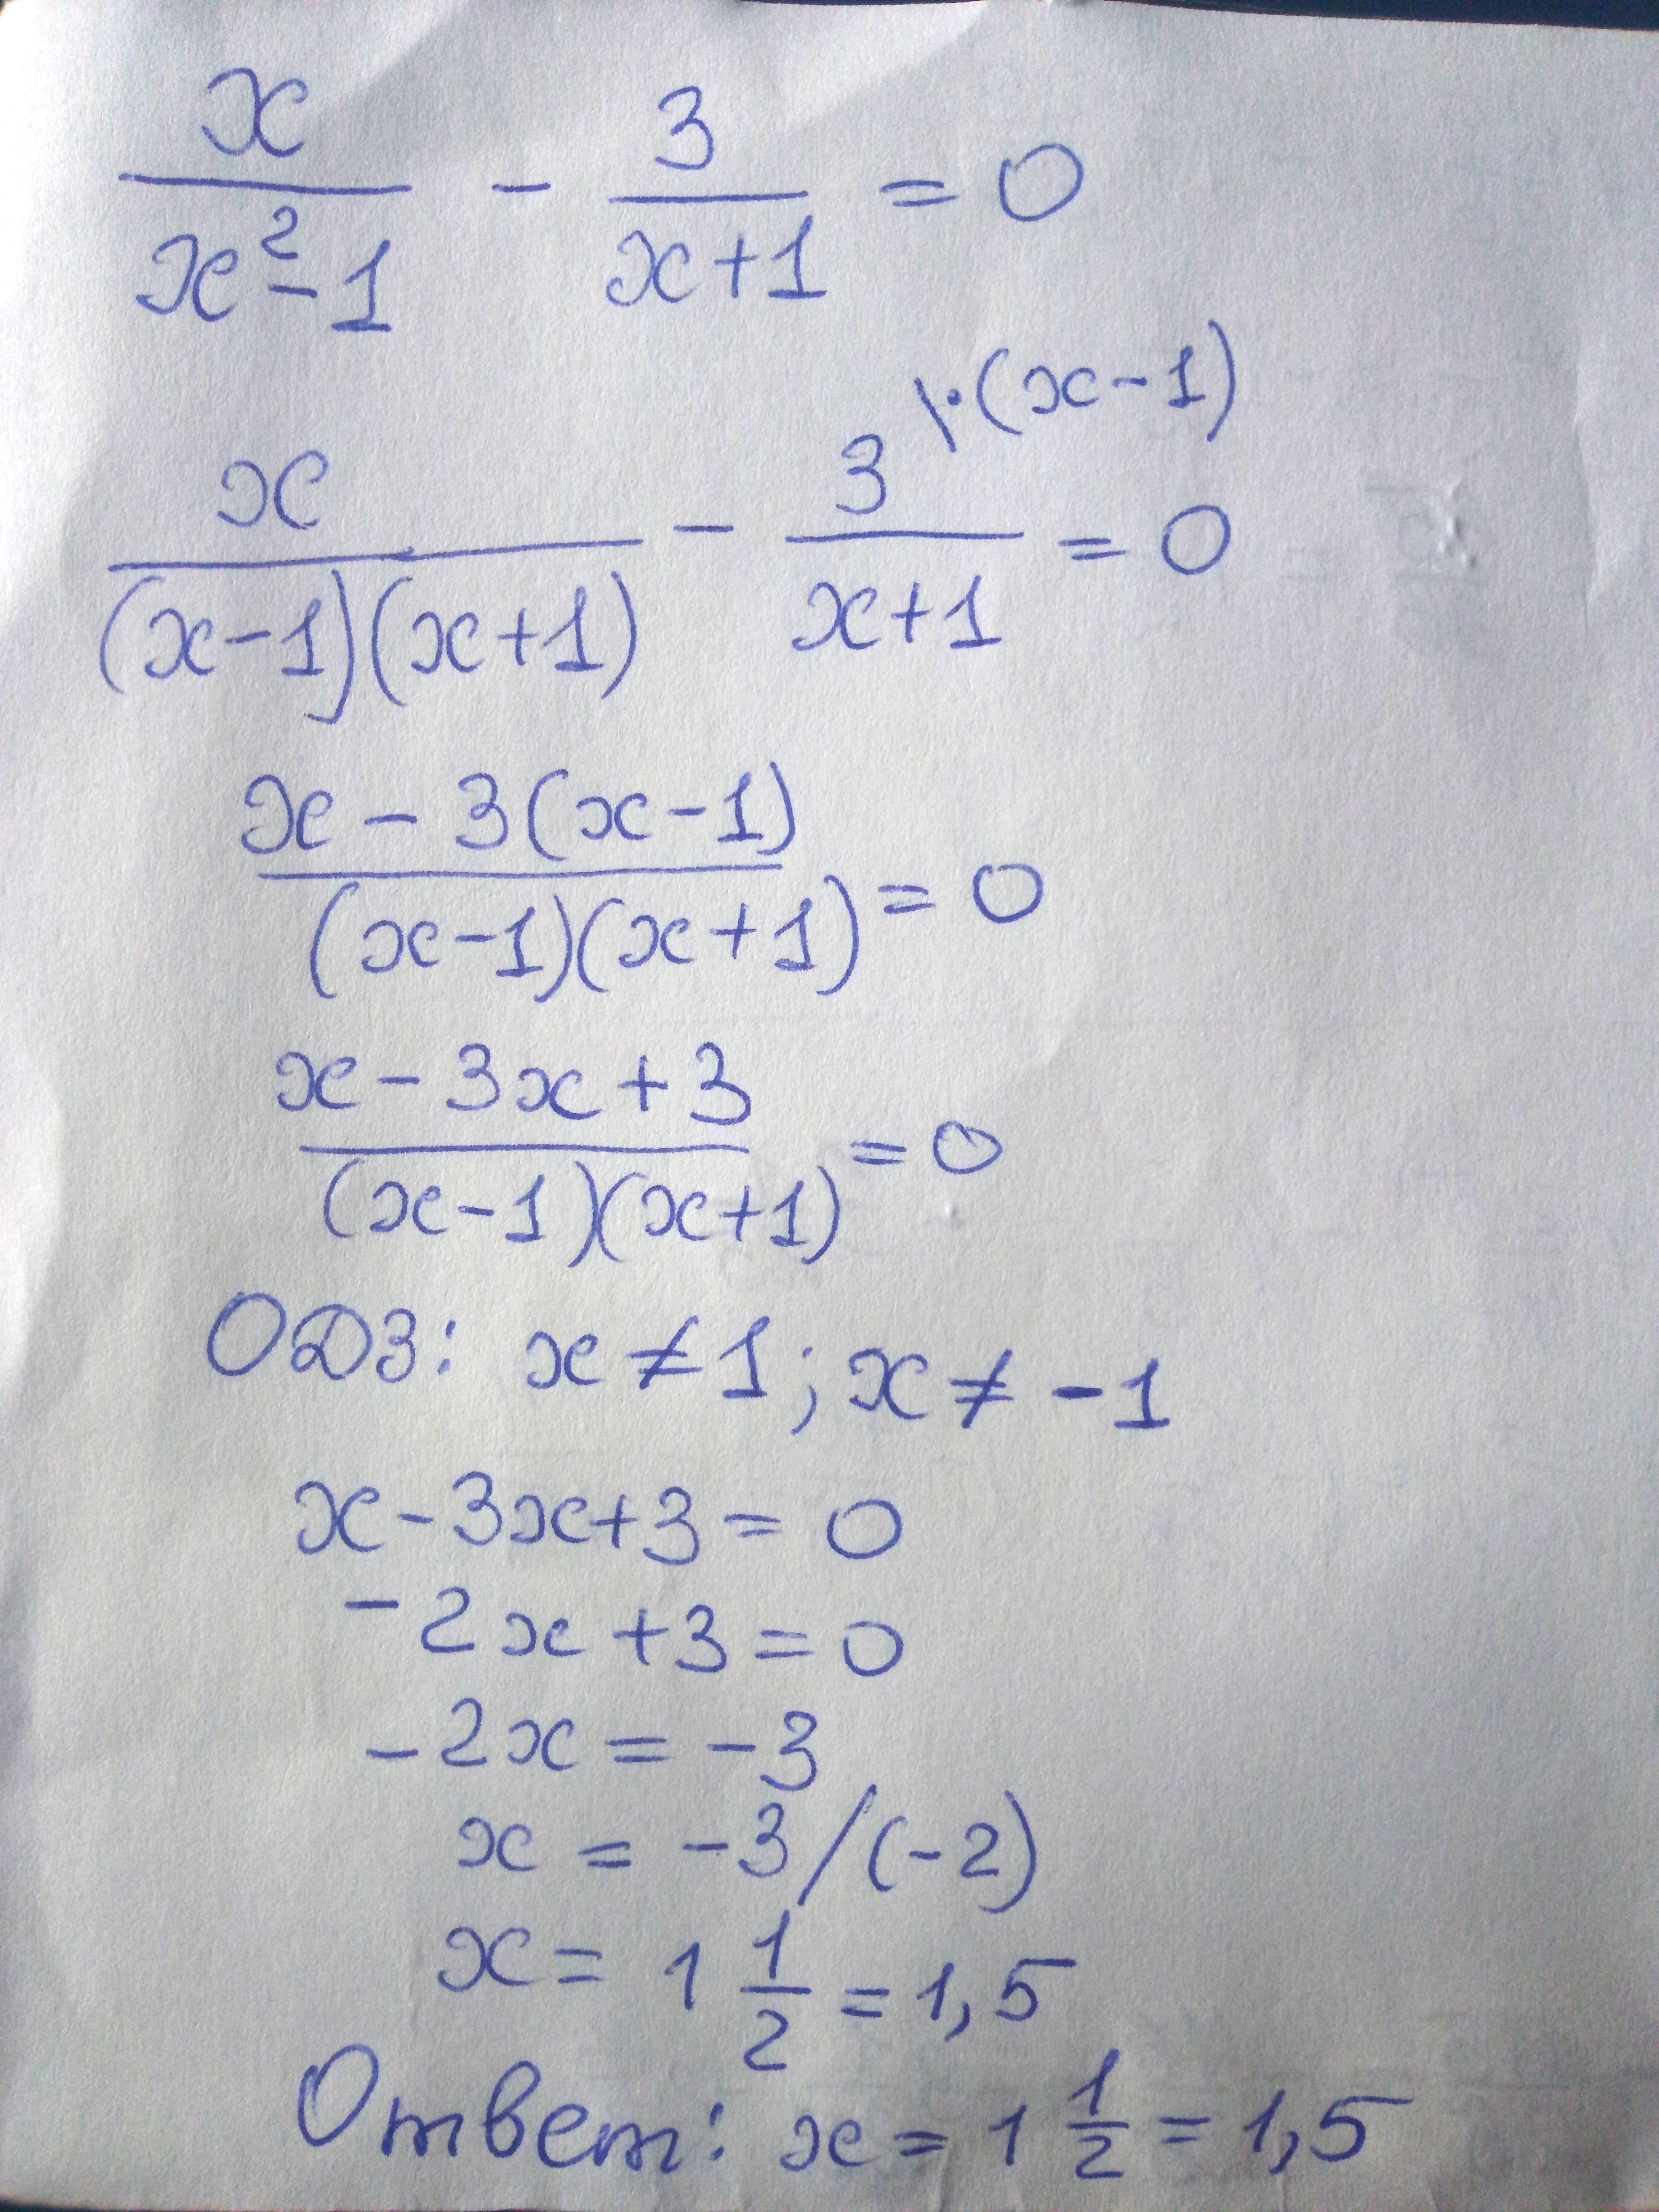 x/(x²-1) - 3/(x+1) = 0
x/((x-1)(x+1)) - 3\·(x-1)/(x+1) = 0
(x-3(x-1))/((x-1)(x+1)) = 0
(x-3x+3)/((x-1)(x+1)) = 0
ОДЗ: x≠1; x≠-1
x-3x+3=0
-2x+3=0
-2x=-3
x=-3/(-2)
x=1 1/2=1,5
Ответ: x=1 1/2=1,5